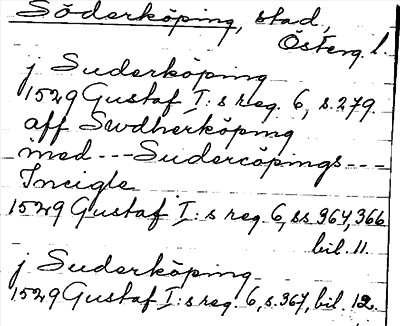 Söderköping, stad,
Österg. l.
j Suderköping
1529 Gustaf I:s reg. 6, s. 279.
aff Swdherköping
med --- Sudercöpings ---
Incigle
1529 Gustaf I:s reg. 6, ss 967, 366
bil. 11.
j Suderköping
1529 Gustaf I:s reg. 6, s. 367, bil. 12.